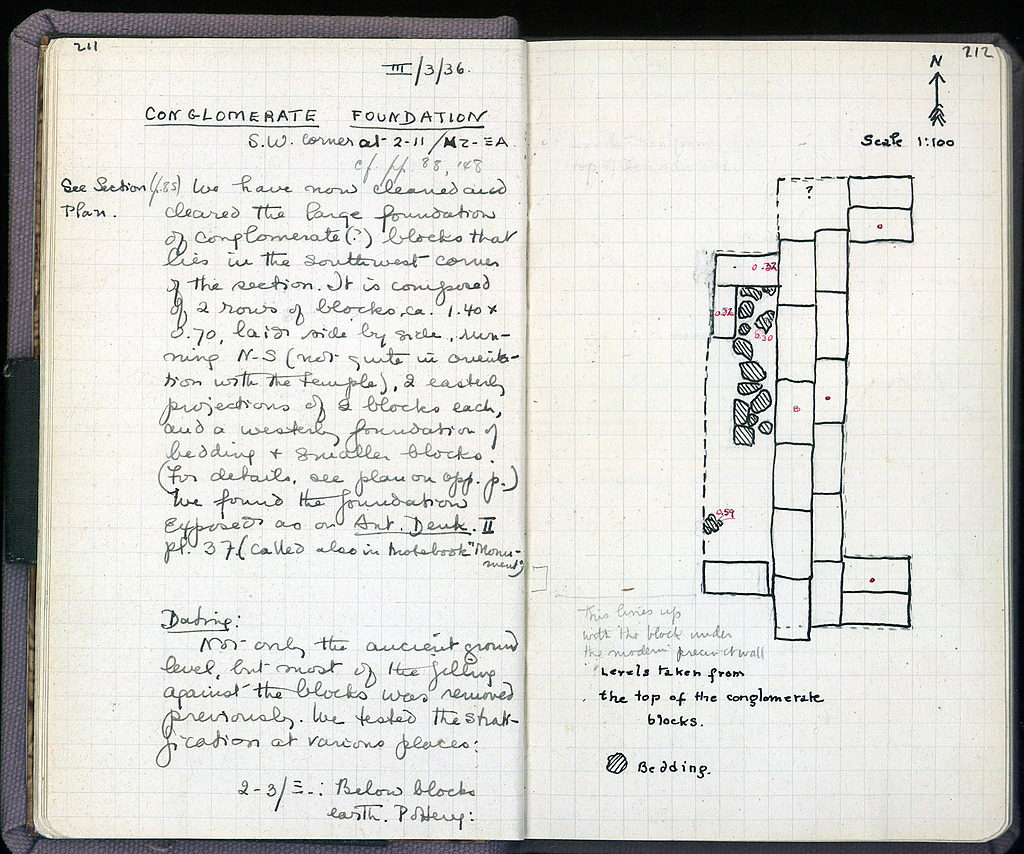 211
III/3/36.
CONGLOMERATE FOUNDATION
S.W. corner at 2-11/ΜΖ-ΞΑ.
cf. pp. 88, 148
See Section (p.85)
Plan.
We have now cleaned and
cleared the large foundation
of conglomerate (?) blocks that
lies in the southwest corner
of the section. It is composed
of 2 rows of blocks, ca. 1.40 x
0.70, laid side by side, run-
ning N-S (not quite in orienta-
tion with the temple), 2 easterly
projections of 2 blocks each,
and a westerly foundation of
bedding + smaller blocks.
(For details, see plan on opp. p.)
We found the foundation
exposed as on Ant. Denk. II
pl. 37. (called also in Notebook "Monu-
ment")
Dating:
Not only the ancient ground
level, but most of the filling
against the blocks was removed
previously. We tested the strat-
ification at various places:
2-3/Ξ-: Below blocks
earth. Pottery:
212
N
Scale 1:100
?
0.32
0.32
0.30
0.59
This lines up
with the block under
the modern precinct wall
Levels taken from
the top of the conglomerate
blocks.
Bedding.